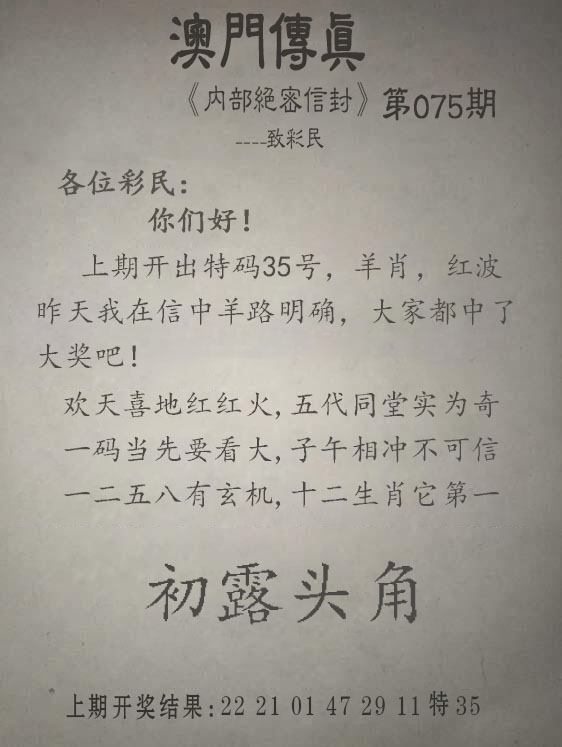 澳門傳眞
《内部絕密信封》第075期
----致彩民
各位彩民:
你们好!
上期开出特码35号，羊肖，红波
昨天我在信中羊路明确，大家都中了
大奖吧!
欢天喜地红红火,五代同堂实为奇
一码当先要看大,子午相冲不可信
一二五八有玄机,十二生肖它第一
初露头角
上期开奖结果:22 21 01 47 29 11 特 35